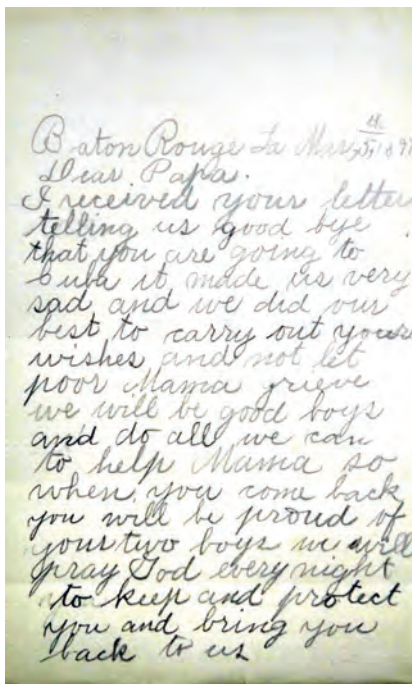 Baton Rouge La Mar
Dear Papa.
I received your letter
telling us good bye
that you are going to
Cuba it made us very
sad and we did our
best to carry out your
wishes and not let
poor Mama grieve
we will be good boys
and do all we can
to help Mama so
when you come back
you will be proud of
your two boys we will
pray God every night
to keep and protect
you and bring you
back to us